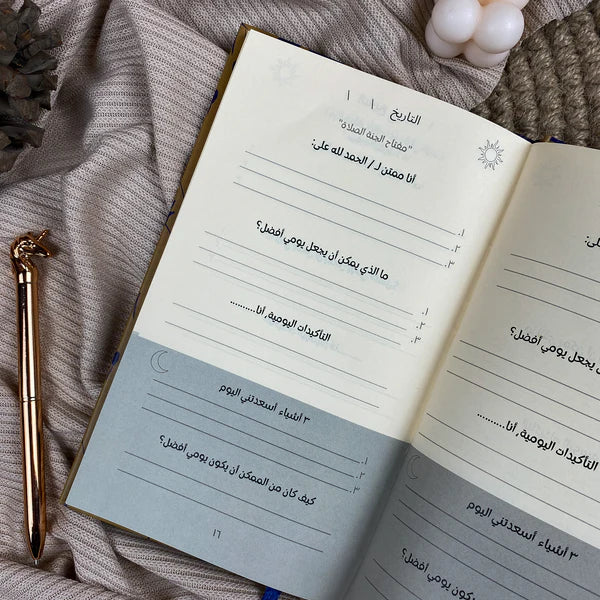 التاريخ \ \
"مفتاح الجنة الصلاة"
أنا ممتن لـ / الحمد لله على:
١.
٢.
٣.
ما الذي يمكن أن يجعل يومي أفضل؟
١.
٢.
٣.
التأكيدات اليومية, أنا..........
٣ أشياء أسعدتني اليوم
١.
٢.
٣.
كيف كان من الممكن أن يكون يومي أفضل؟
١٦
على:
يجعل يومي أفضل؟
اليومية, أنا..........
٣ أشياء أسعدتني اليوم
يكون يومي أفضل؟